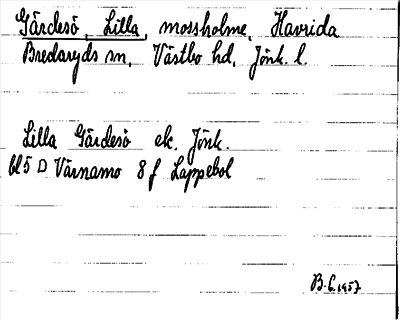 Gärdesö, Lilla, mossholme, Havrida
Bredaryds sn, Västbo hd, Jönk. l.
Lilla Gärdesö ek. Jönk.
bl 5 D Värnamo 8 f Lappebol
B.E. 1957